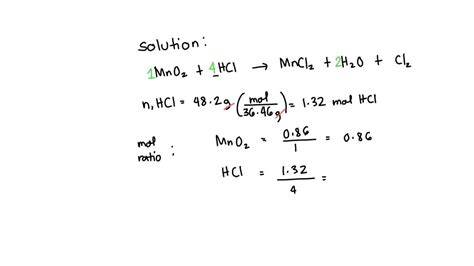 Solution:
1MnO₂ + 4HCl → MnCl₂ + 2H₂O + Cl₂
n, HCl = 48.2g (mol / 36.46g) = 1.32 mol HCl
mol ratio : MnO₂ = 0.86 / 1 = 0.86
HCl = 1.32 / 4 =